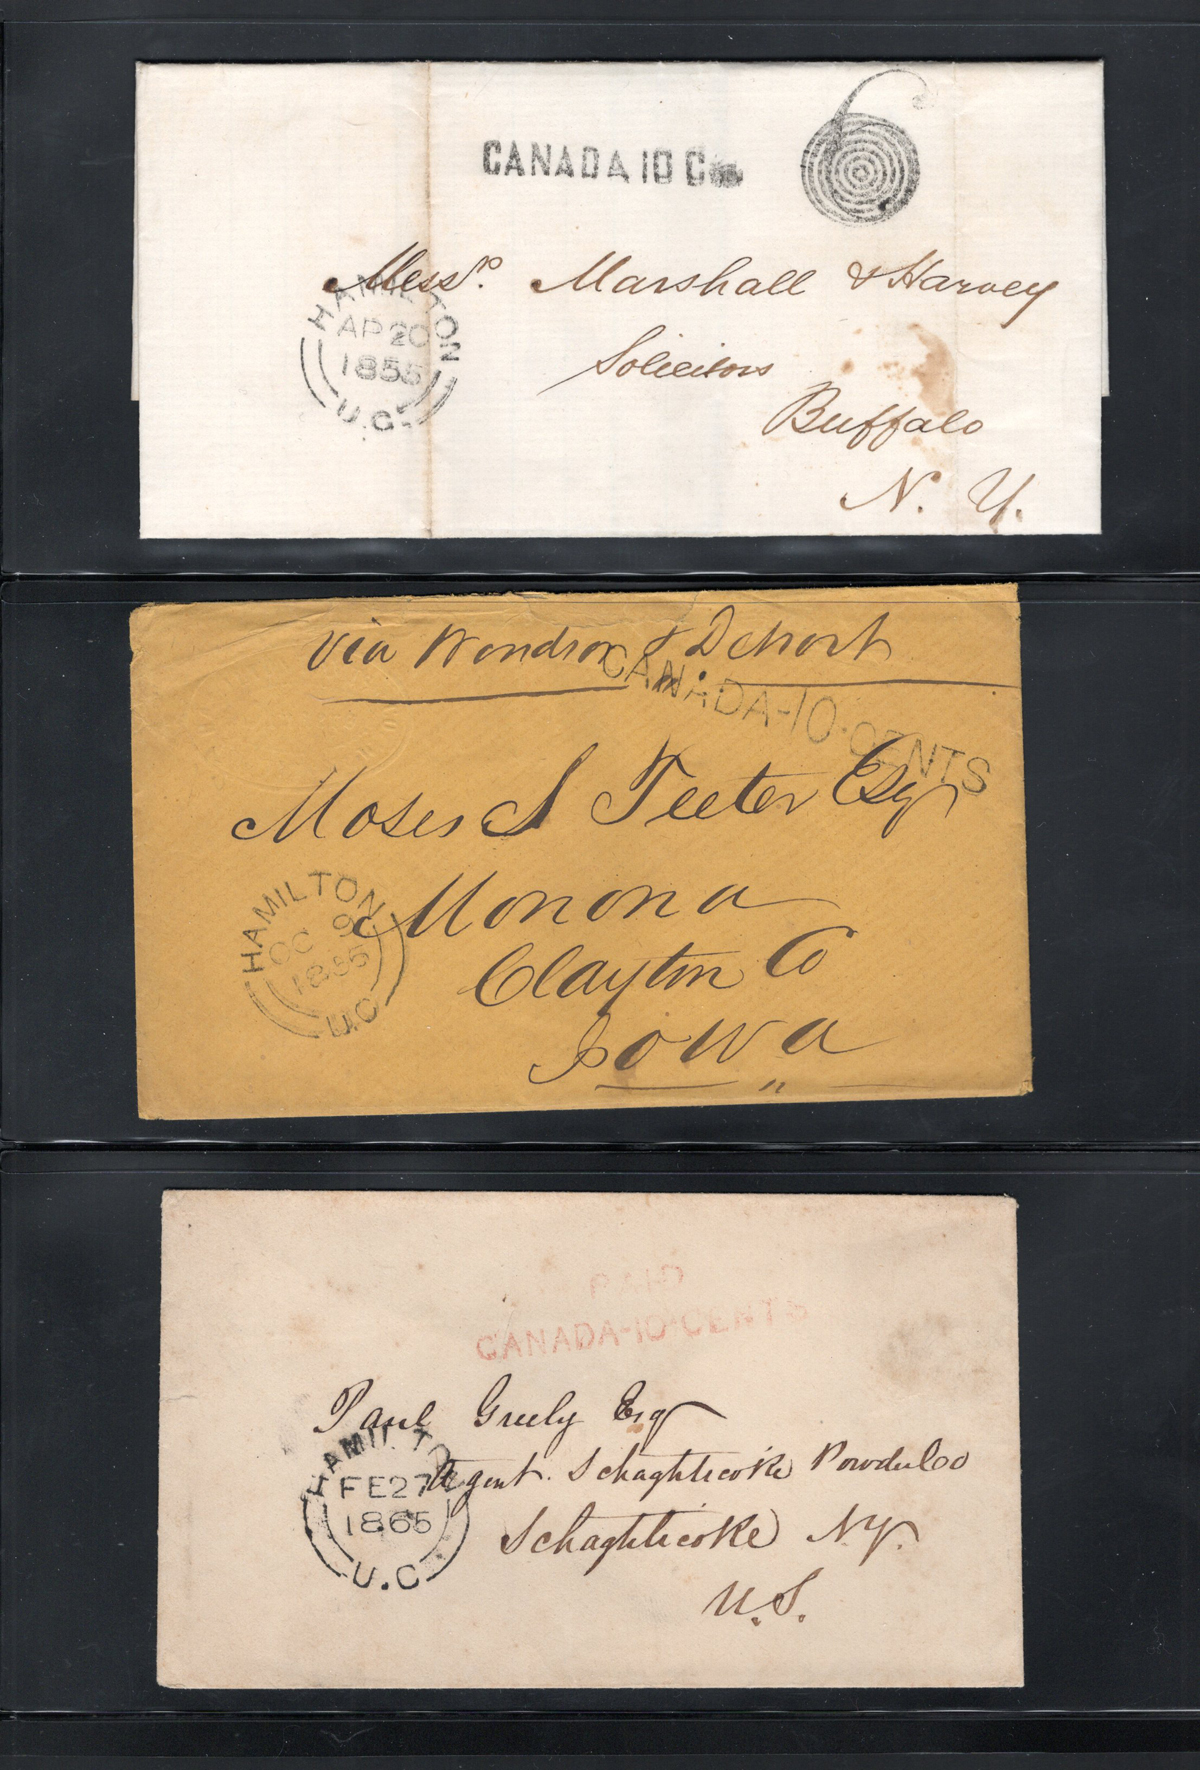 CANADA 10 C
6
Messrs. Marshall & Harvey
HAMILTON
AP 20
1855
U.C.
Solicitors
Buffalo
N. Y.
Via Windsor & Detroit
CANADA-10-CENTS
Moses S Teeter Esq
HAMILTON
OC 9
1865
U.C
Monona
Clayton Co
Iowa
PAID
CANADA-10-CENTS
Paul Greely Esq
HAMILTON
FE 27
1865
U.C
Agent. Schaghticoke Powder Co
Schaghticoke N.Y.
U.S.